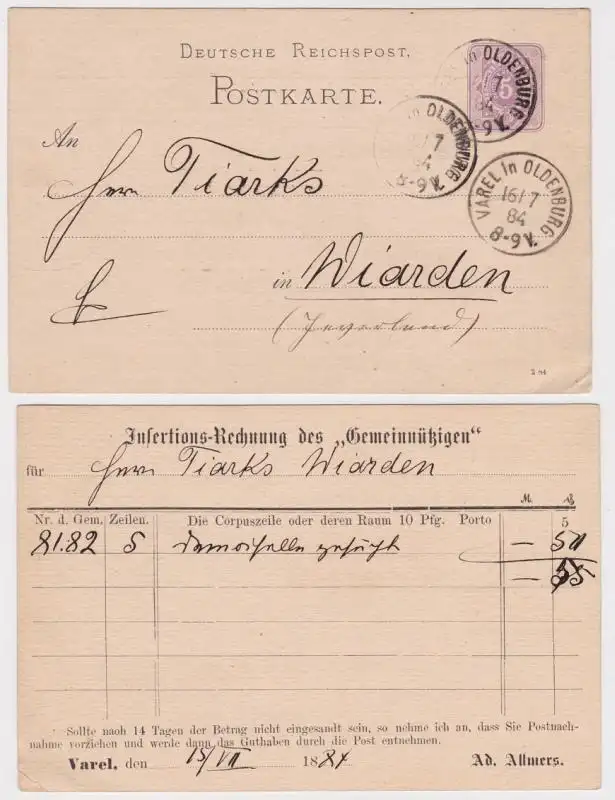 DEUTSCHE REICHSPOST.
POSTKARTE.
5
in OLDENBURG
7
84
8-9 V.
in OLDENBURG
7
84
8-9 V.
VAREL In OLDENBURG
16/7
84
8-9 V.
An
Herrn Tiarks
in Wiarden
(Jeverland)
Insertions-Rechnung des „Gemeinnützigen“
für Herrn Tiarks Wiarden
M. ₰
Nr. d. Gem. Zeilen. Die Corpuszeile oder deren Raum 10 Pfg. Porto 5
81.82 5 gesucht — 50
— 55
Sollte nach 14 Tagen der Betrag nicht eingesandt sein, so nehme ich an, dass Sie Postnach-
nahme vorziehen und werde dann das Guthaben durch die Post entnehmen.
Varel, den 15/VII 1884 Ad. Allmers.